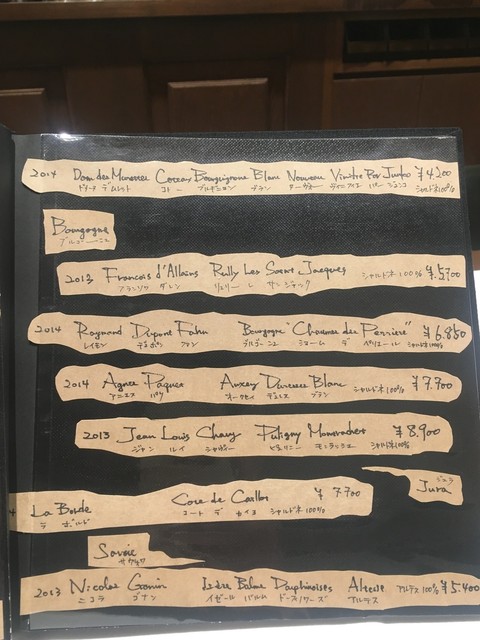 2014 Dom des Coteaux Bourguignons Blanc Nouveau Vinifie Par Junko ¥4,200
ブラン ヌーヴォー ヴィニフィエ パー ジュンコ シャルドネ100%
Bourgogne
ブルゴーニュ
2013 Francois d'Allaines Rully Les Saint Jacques シャルドネ100% ¥5,700
フランソワ ダレン リュリー レ サンジャック
2014 Raymond Dupont Fahn Bourgogne "Chaumes des Perrières" ¥6,850
レイモン デュポン ファン ブルゴーニュ ショーム デ ペリエール シャルドネ100%
2014 Agnes Paquet Auxey Duresses Blanc シャルドネ100% ¥7,700
アニエス パケ オークセイ デュレス ブラン
2013 Jean Louis Chavy Puligny Montrachet ¥8,900
ジャン ルイ シャヴィー ピュリニー モンラッシェ シャルドネ100%
Jura
ジュラ
La Borde Cote de Caillot ¥7,700
ラ ボルド コート デ カイヨ シャルドネ100%
Savoie
サヴォワ
2013 Nicolas Gonin Isère Balmes Dauphinoises Altesse アルテス100% ¥5,400
ニコラ ゴナン イゼール バルム ドーフィノワーズ アルテス